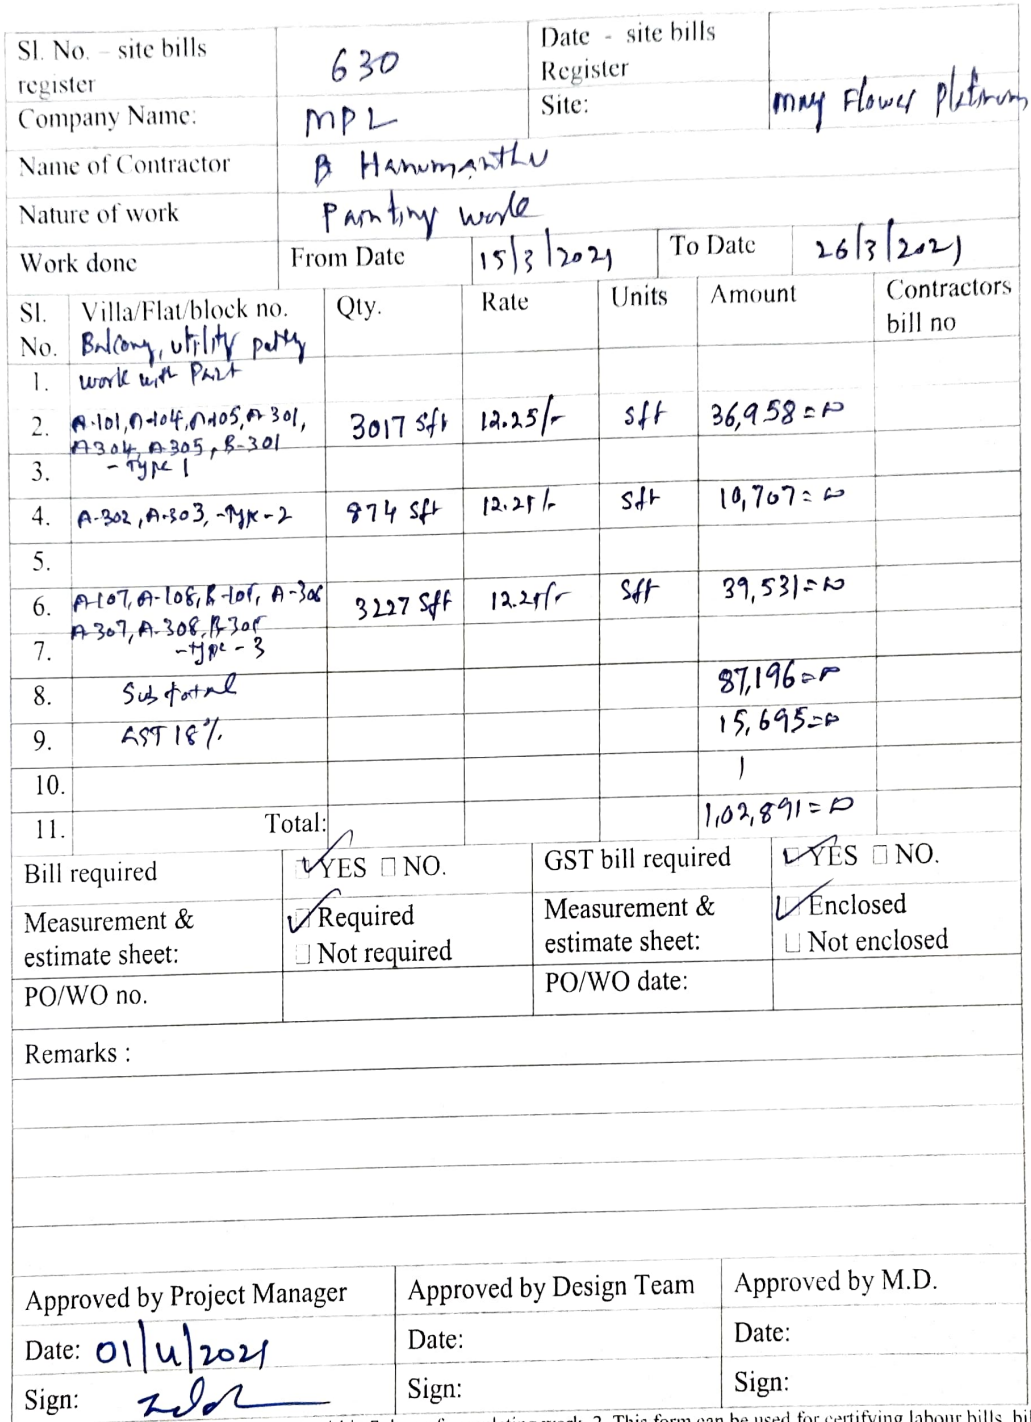 Sl. No. – site bills register 630 Date - site bills Register
Company Name: MPL Site: May Flower Platinum
Name of Contractor B Hanumanthu
Nature of work Painting work
Work done From Date 15/3/2021 To Date 26/3/2021
Sl. No. Villa/Flat/block no. Qty. Rate Units Amount Contractors bill no
Balcony, utility patty
1. work with Part
2. A-101, A-104, A-105, A-301, 3017 Sft 12.25/- Sft 36,958=00
A304, A-305, B-301
3. - Type 1
4. A-302, A-303, -Type-2 874 Sft 12.25/- Sft 10,707=00
5.
6. A-107, A-108, B-105, A-306 3227 Sft 12.25/- Sft 39,531=00
A-307, A-308, B-305
7. -type-3
8. Sub total 87,196=00
9. GST 18% 15,695=00
10.
11. Total: 1,02,891=00
Bill required YES NO. GST bill required YES NO.
Measurement & estimate sheet: Required Not required Measurement & estimate sheet: Enclosed Not enclosed
PO/WO no. PO/WO date:
Remarks :
Approved by Project Manager Approved by Design Team Approved by M.D.
Date: 01/4/2021 Date: Date:
Sign: Sign: Sign:
This form can be used for certifying labour bills,